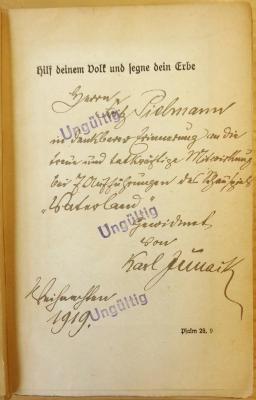 Hilf deinem Volk und segne dein Erbe
Herrn
Fritz Sielmann
in dankbarer Erinnerung an die
treue und tatkräftige Mitwirkung
bei 7 Aufführungen des Schauspiels
"Vaterland"
Gewidmet
von
Karl
Weihnachten
1919.
Ungültig
Ungültig
Ungültig
Psalm 28, 9